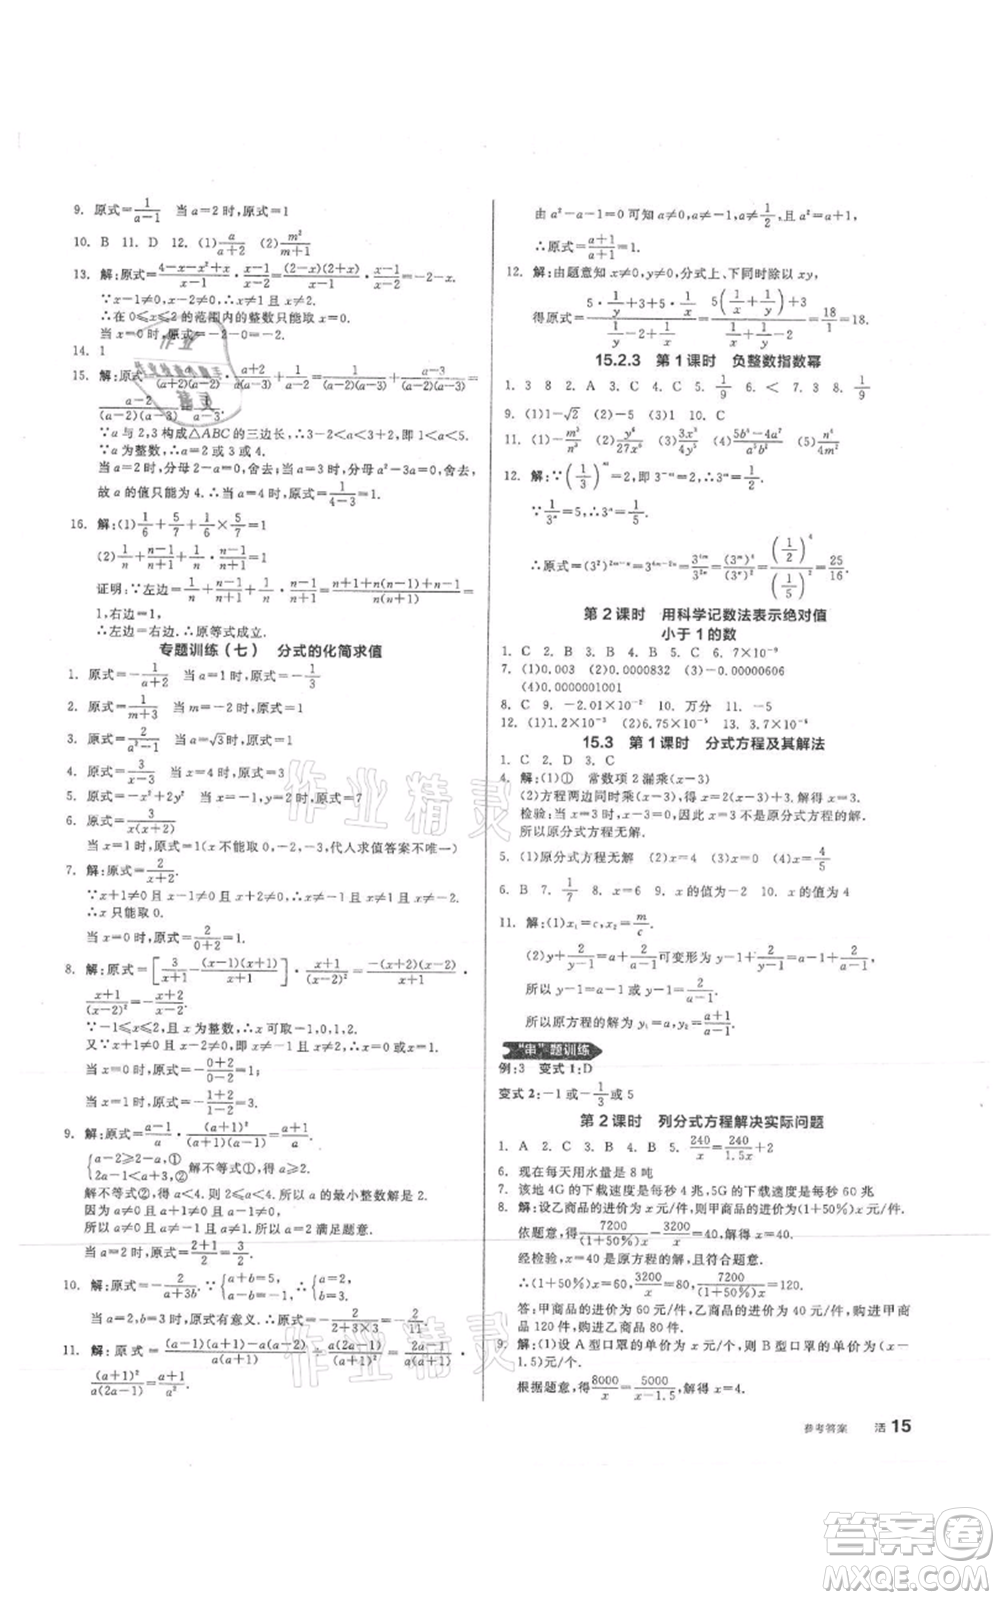 9. 原式=1/(a-1) 当 a=2 时,原式=1
10. B 11. D 12. (1)a/(a+2) (2)m²/(m+1)
13. 解:原式=(4-x-x²+x)/(x-1)·(x-1)/(x-2)=(2-x)(2+x)/(x-1)·(x-1)/(x-2)=-2-x.
∵x-1≠0,x-2≠0,∴x≠1,x≠2.
∴在 0≤x≤2 的范围内的整数只能取 x=0.
当 x=0 时,原式=-2-0=-2.
14. 1
∵a 与 2,3 构成△ABC 的三边长,∴3-2<a<3+2,即 1<a<5.
∵a 为整数,∴a=2 或 3 或 4.
当 a=2 时,分母 2-a=0,舍去;当 a=3 时,分母 a²-3a=0,舍去,
故 a 的值只能为 4.∴当 a=4 时,原式=1/(4-3)=1.
16. 解:(1)1/6+5/7+1/6×5/7=1
(2)1/n+(n-1)/(n+1)+1/n·(n-1)/(n+1)=1
证明:∵左边=1/n+(n-1)/(n+1)+1/n·(n-1)/(n+1)=(n+1)/(n(n+1))+n(n-1)/(n(n+1))+(n-1)/(n(n+1))=
1,右边=1,
∴左边=右边.∴原等式成立.
专题训练(七) 分式的化简求值
1. 原式=-1/(a+2) 当 a=1 时,原式=-1/3
2. 原式=1/(m+3) 当 m=-2 时,原式=1
3. 原式=2/(a²-1) 当 a=√3 时,原式=1
4. 原式=3/(x-3) 当 x=4 时,原式=3
5. 原式=-x²+2y² 当 x=1,y=-1 时,原式=1
6. 原式=3/(x(x+2))
当 x=1 时,原式=1(x≠-2,0,-1,3,代入求值答案不唯一)
7. 解:原式=2/(x+2).
∵x+1≠0 且 x-1≠0 且 x+2≠0,∴x≠-1 且 x≠1 且 x≠-2.
∴x 只能取 0.
当 x=0 时,原式=2/(0+2)=1.
8. 解:原式=[3/(x+1)-(x-1)(x+1)/(x+1)]·(x+1)/(x-2)²=-(x-2)(x+2)/(x+1)·
(x+1)/(x-2)²=-(x+2)/(x-2).
∵-1≤x≤2,且 x 为整数,∴x 可取-1,0,1,2.
又∵x+1≠0 且 x-2≠0,即 x≠-1 且 x≠2,∴x=0 或 x=1.
当 x=0 时,原式=-(0+2)/(0-2)=1.
当 x=1 时,原式=-(1+2)/(1-2)=3.
9. 解:原式=(a-1)/a·(a+1)²/((a+1)(a-1))=(a+1)/a.
{a-2≥2-a,① 2a-1<a+3.② 解不等式①,得 a≥2.
解不等式②,得 a<4.则 2≤a<4.所以 a 的最小整数值为 2.
因为 a≠0,a+1≠0,a-1≠0,
所以 a≠0,a≠±1.所以 a=2 满足题意.
当 a=2 时,原式=(2+1)/2=3/2.
10. 解:原式=-2/(a+3b).∵{a+b=5, a-b=-1,∴{a=2, b=3.
当 a=2,b=3 时,原式有意义,∴原式=-2/(2+3×3)=-2/11.
11. 解:原式=((a-1)(a+1)-a(a-2))/(a(a+1))÷a(2a-1)/(a+1)²=(2a-1)/(a(a+1))·
(a+1)²/(a(2a-1))=(a+1)/a².
由 a²-a-1=0 可知 a≠0,a≠-1,a≠1/2,且 a²=a+1,
∴原式=(a+1)/(a+1)=1.
12. 解:由题意知 x≠0,y≠0,分式上、下同时除以 xy,
得原式=(5·1/y+3+5·1/x)/(1/y-2+1/x)=(5(1/x+1/y)+3)/(1/x+1/y-2)=18/1=18.
15.2.3 第 1 课时 负整数指数幂
1. 3 8 2. A 3. C 4. C 5. 1/9 6. < 7. 3 8. 1/9
9. (1)-√2 (2)-5 (3)1 10. C
11. (1)-m³/n² (2)y⁶/27x³ (3)3y³/4x² (4)(5b⁴-4a²)/a²b² (5)n⁴/m⁵
12. 解:∵(1/3)^m=2,∴1/3^m=2,3^m=1/2.
∵1/3^n=5,∴3^n=1/5.
∴原式=(3²)^(2m-n)=3^(4m-2n)=3^(4m)/3^(2n)=(3^m)⁴/(3^n)²=(1/2)⁴/(1/5)²=25/16.
第 2 课时 用科学记数法表示绝对值
小于 1 的数
1. C 2. B 3. B 4. C 5. B 6. 7×10⁻⁹
7. (1)0.003 (2)0.0000832 (3)-0.00000006
(4)0.0000001001
8. C 9. -2.01×10⁻² 10. 万分 11. -5
12. (1)1.2×10⁻³ (2)6.75×10⁻⁵ 13. 3.7×10⁻⁶
15.3 第 1 课时 分式方程及其解法
1. C 2. D 3. C
4. 解:(1)① 常数项 2 漏乘(x-3)
(2)方程两边同时乘(x-3),得 1-x=-1-2(x-3),解得 x=3.
检验:当 x=3 时,x-3=0,因此 x=3 不是原分式方程的解.
所以原分式方程无解.
5. (1)原分式方程无解 (2)x=4 (3)x=2 (4)x=4/5
6. B 7. 1/7 8. x=1 9. x 的值为-2 10. x 的值为 4
11. 解:(1)x₁=c,x₂=m/c.
(2)y+2/(y-1)=a+2/(a-1)可变形为 y-1+2/(y-1)=a-1+2/(a-1),
所以 y-1=a-1 或 y-1=2/(a-1).
所以原方程的解为 y₁=a,y₂=(a+1)/(a-1).
“串”题训练
例:3 变式 1:D
变式 2:-1 或-1/3 或 5
第 2 课时 列分式方程解决实际问题
1. A 2. C 3. B 4. B 5. 240/x=240/1.5x+2
6. 现在每天用水量是 8 吨
7. 该地 4G 的下载速度是每秒 4 兆,5G 的下载速度是每秒 60 兆
8. 解:设乙商品的进价为 x 元/件,则甲商品的进价为(1+50%)x 元/件.
依题意,得7200/((1+50%)x)-3200/x=40,解得 x=40.
经检验,x=40 是原方程的解,且符合题意.
∴(1+50%)x=60,3200/x=80,7200/((1+50%)x)=120.
答:甲商品的进价为 60 元/件,乙商品的进价为 40 元/件,购进甲商品 120 件,购进乙商品 80 件.
9. 解:(1)设 A 型口罩的单价为 x 元,则 B 型口罩的单价为(x-
1.5)元.
根据题意,得8000/x=5000/(x-1.5),解得 x=4.
参考答案 活 15
作业精灵
答案圈
MXQE.COM